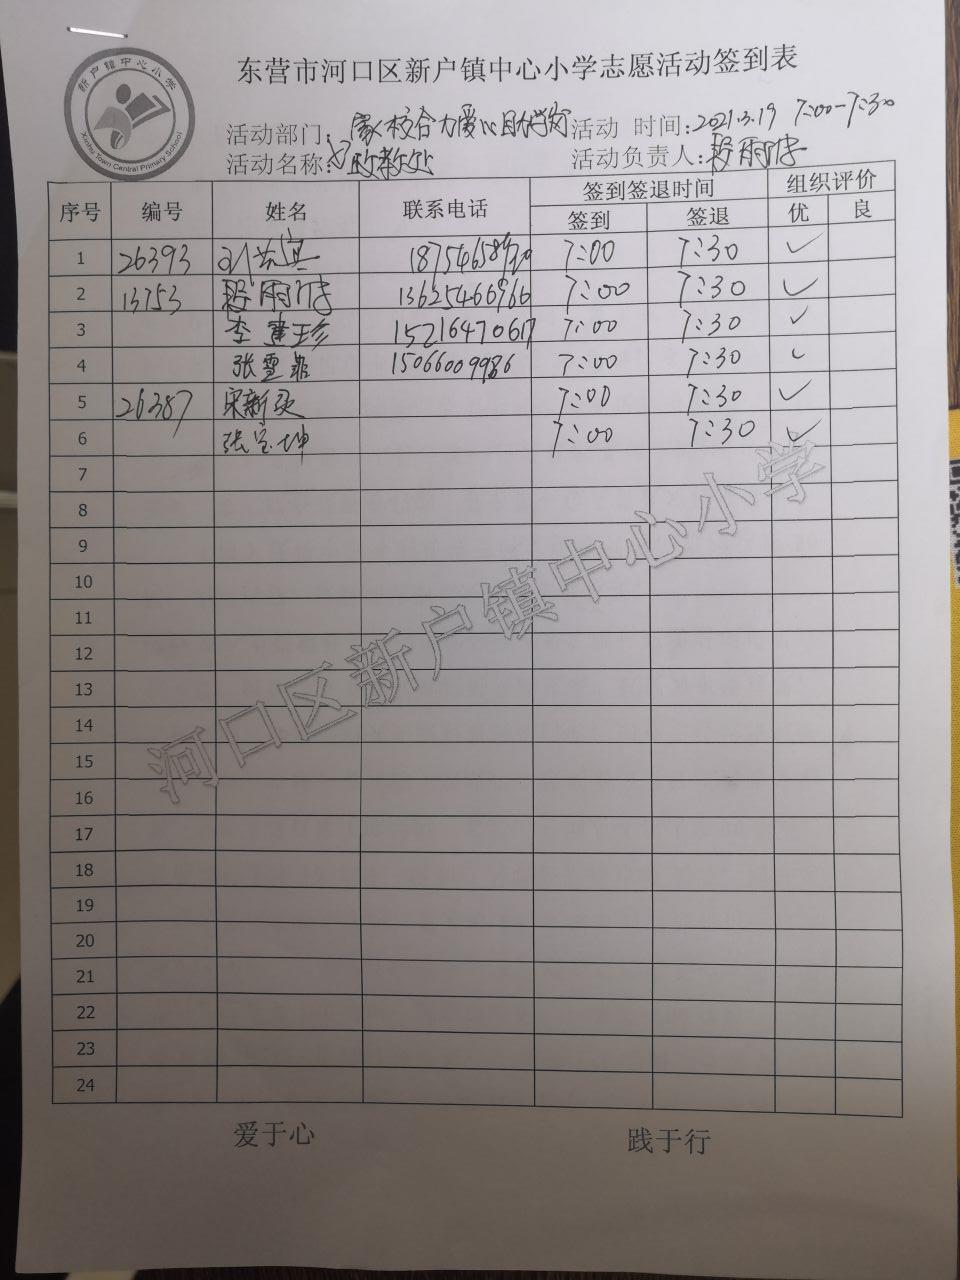 新户镇中心小学
Xinhu Town Central Primary School
东营市河口区新户镇中心小学志愿活动签到表
活动部门: 家校合力爱心助学 活动 时间: 2021.3.19 7:00-7:30
活动名称: 政教处 活动负责人: 段雨
序号 编号 姓名 联系电话 签到签退时间 组织评价
签到 签退 优 良
1 26393 7:00 7:30 ✓
2 13753 段雨 13625466966 7:00 7:30 ✓
3 李建珍 15216470617 7:00 7:30 ✓
4 张雪 15066009986 7:00 7:30 ✓
5 26387 宋新 7:00 7:30 ✓
6 张宝坤 7:00 7:30 ✓
7
8
9
10
11
12
13
14
15
16
17
18
19
20
21
22
23
24
河口区新户镇中心小学
爱于心 践于行